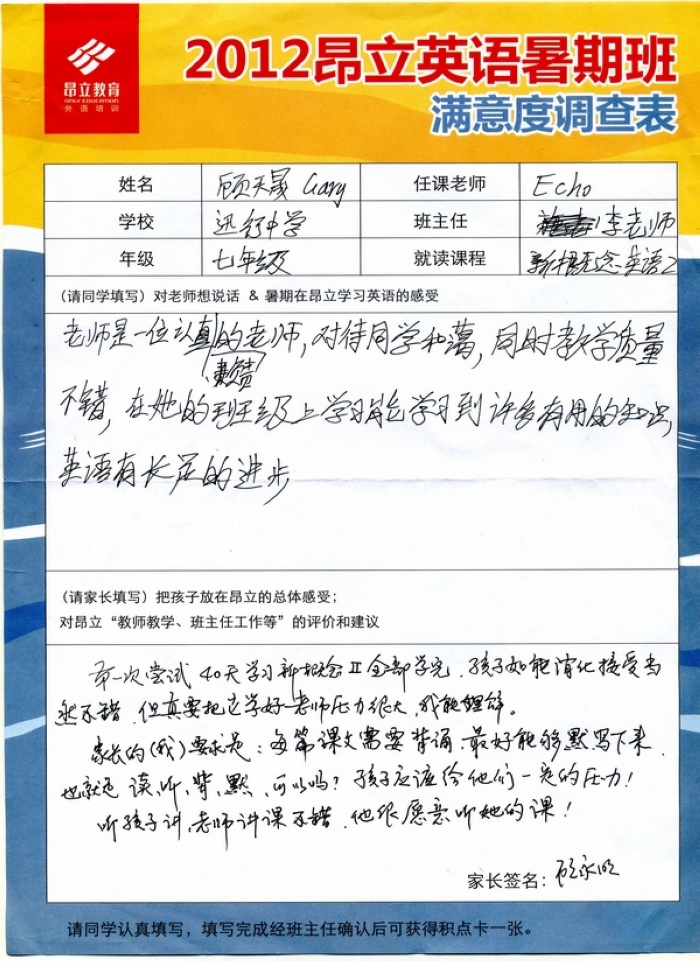 昂立教育
ONLY EDUCATION
外语培训
2012昂立英语暑期班
满意度调查表
姓名 顾天晟 Gary 任课老师 Echo
学校 迅行中学 班主任 李老师
年级 七年级 就读课程 新概念英语2
(请同学填写) 对老师想说话 & 暑期在昂立学习英语的感受
老师是一位认真的老师,对待同学和蔼,同时教学质量
负责
不错,在她的班级上学习能学习到许多有用的知识,
英语有长足的进步
(请家长填写) 把孩子放在昂立的总体感受;
对昂立“教师教学、班主任工作等”的评价和建议
第一次尝试40天学习新概念II全部学完,孩子如能消化接受当
然不错,但真要把它学好老师压力很大,我能理解。
家长的(我)要求是:每篇课文需要背诵,最好能够默写下来,
也就是读、听、背、默,可以吗?孩子应该给他们一定的压力!
听孩子讲,老师讲课不错,他很愿意听她的课!
家长签名: 顾永明
请同学认真填写,填写完成经班主任确认后可获得积点卡一张。